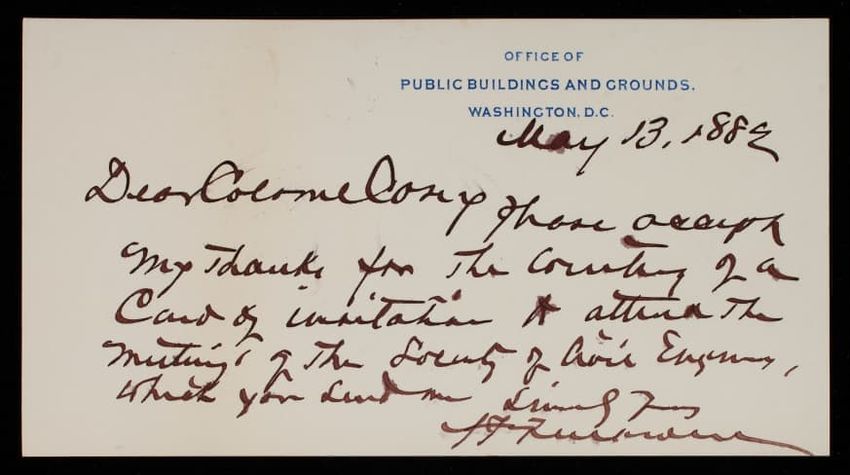 OFFICE OF
PUBLIC BUILDINGS AND GROUNDS.
WASHINGTON, D.C.
May 13, 1882
Dear Colonel Casey Please accept
my thanks for the courtesy of a
Card of invitation to attend the
meetings of the Society of Civil Engineers,
which you send me Sincerely Yours